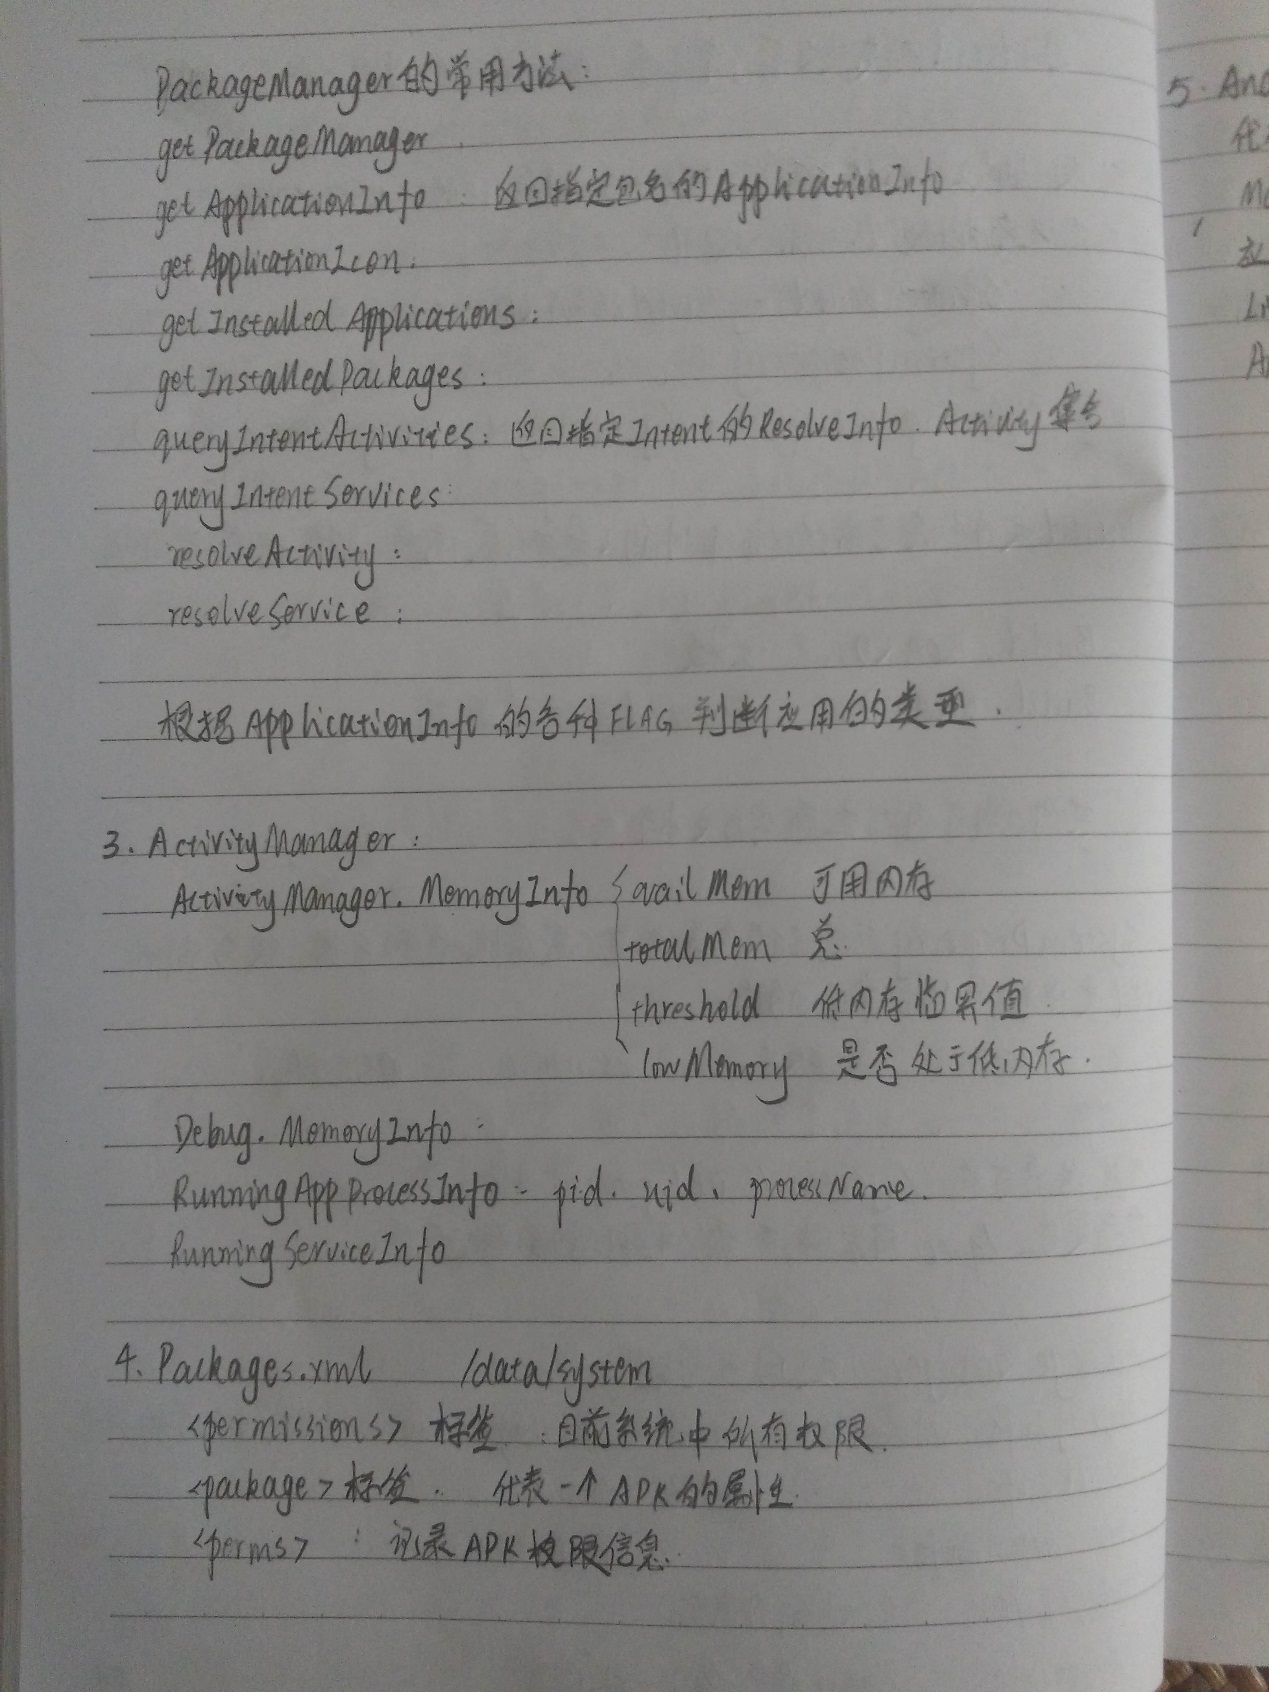 PackageManager的常用方法:
getPackageManager
getApplicationInfo : 返回指定包名的ApplicationInfo
getApplicationIcon.
getInstalledApplications:
getInstalledPackages:
queryIntentActivities: 返回指定Intent的ResolveInfo. Activity集合
queryIntentServices:
resolveActivity:
resolveService:
根据ApplicationInfo的各种FLAG 判断应用的类型.
3. ActivityManager:
ActivityManager. MemoryInfo { avail Mem 可用内存
total Mem 总.
threshold 低内存临界值
low Memory 是否处于低内存.
Debug. MemoryInfo :
RunningAppProcessInfo : pid. uid、processName.
RunningServiceInfo
4. Packages.xml /data/system
<permissions> 标签 : 目前系统中所有权限.
<package> 标签. 代表一个APK的属性.
<perms> : 记录APK权限信息.
5. And
Ma
应
Li